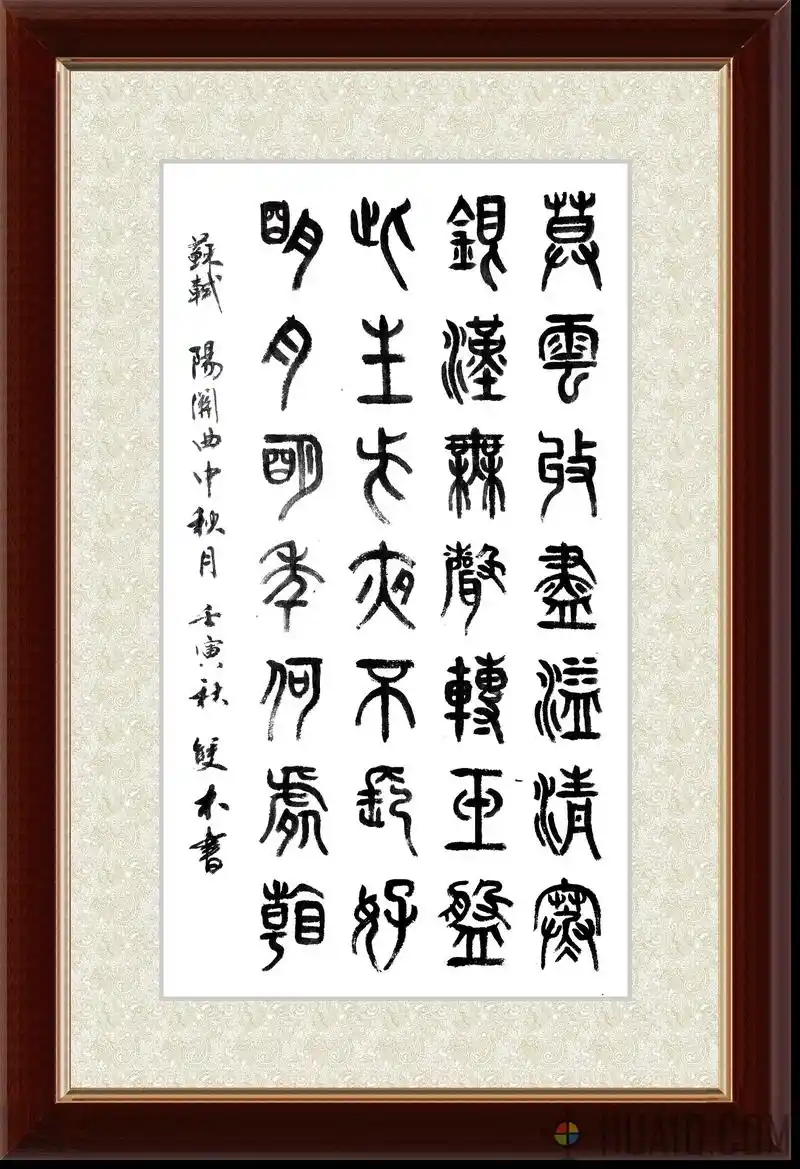 莫雲收盡溢清寒
銀漢無聲轉玉盤
此生此夜不長好
明月明年何處看
蘇軾 陽關曲中秋月 壬寅秋 雙木書
HUA10.COM